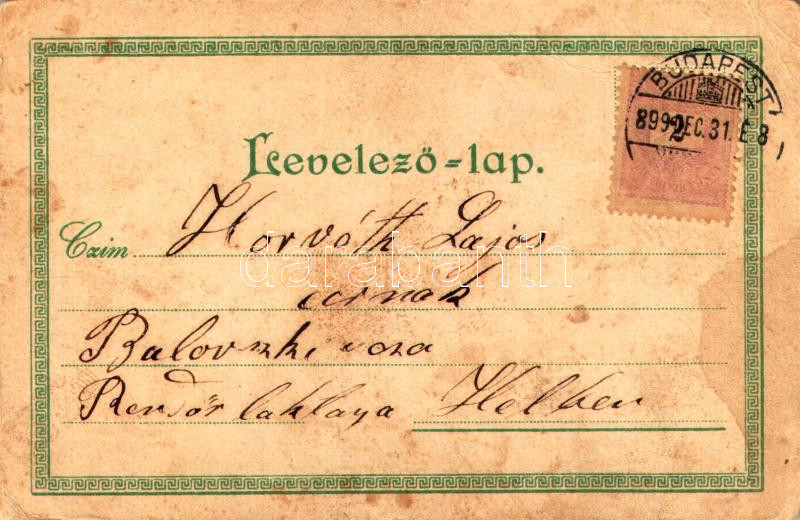 BUDAPEST
899 DEC. 31. E 8
2
Levelező-lap.
Czim Horváth Lajos
urnak
Balovszki
Rendőr laktanya Helben
darabanth